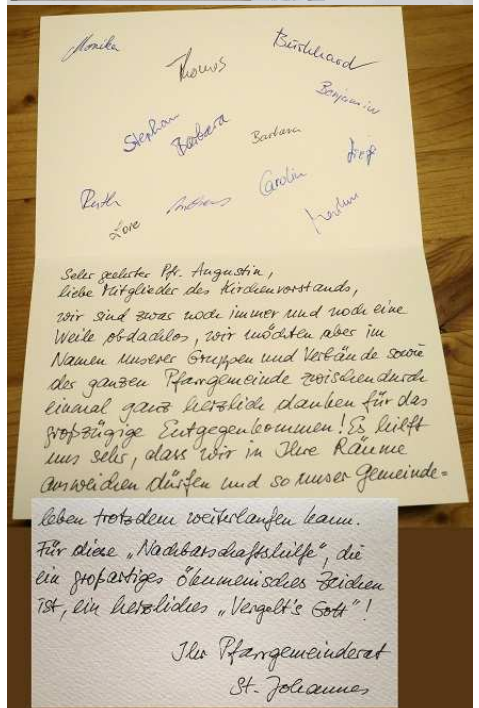 Monika
Thomas
Burkhard
Benjamin
Stephan
Barbara
Barbara
Carolin
Ruth
Lore
Andreas
Sehr geehrter Pfr. Augustin,
liebe Mitglieder des Kirchenvorstands,
wir sind zwar noch immer und noch eine
Weile obdachlos, wir möchten aber im
Namen unserer Gruppen und Verbände sowie
der ganzen Pfarrgemeinde zwischendurch
einmal ganz herzlich danken für das
großzügige Entgegenkommen! Es hilft
uns sehr, dass wir in Ihre Räume
ausweichen dürfen und so unser Gemeinde-
leben trotzdem weiterlaufen kann.
Für diese „Nachbarschaftshilfe", die
ein großartiges ökumenisches Zeichen
ist, ein herzliches „Vergelt's Gott"!
Ihr Pfarrgemeinderat
St. Johannes